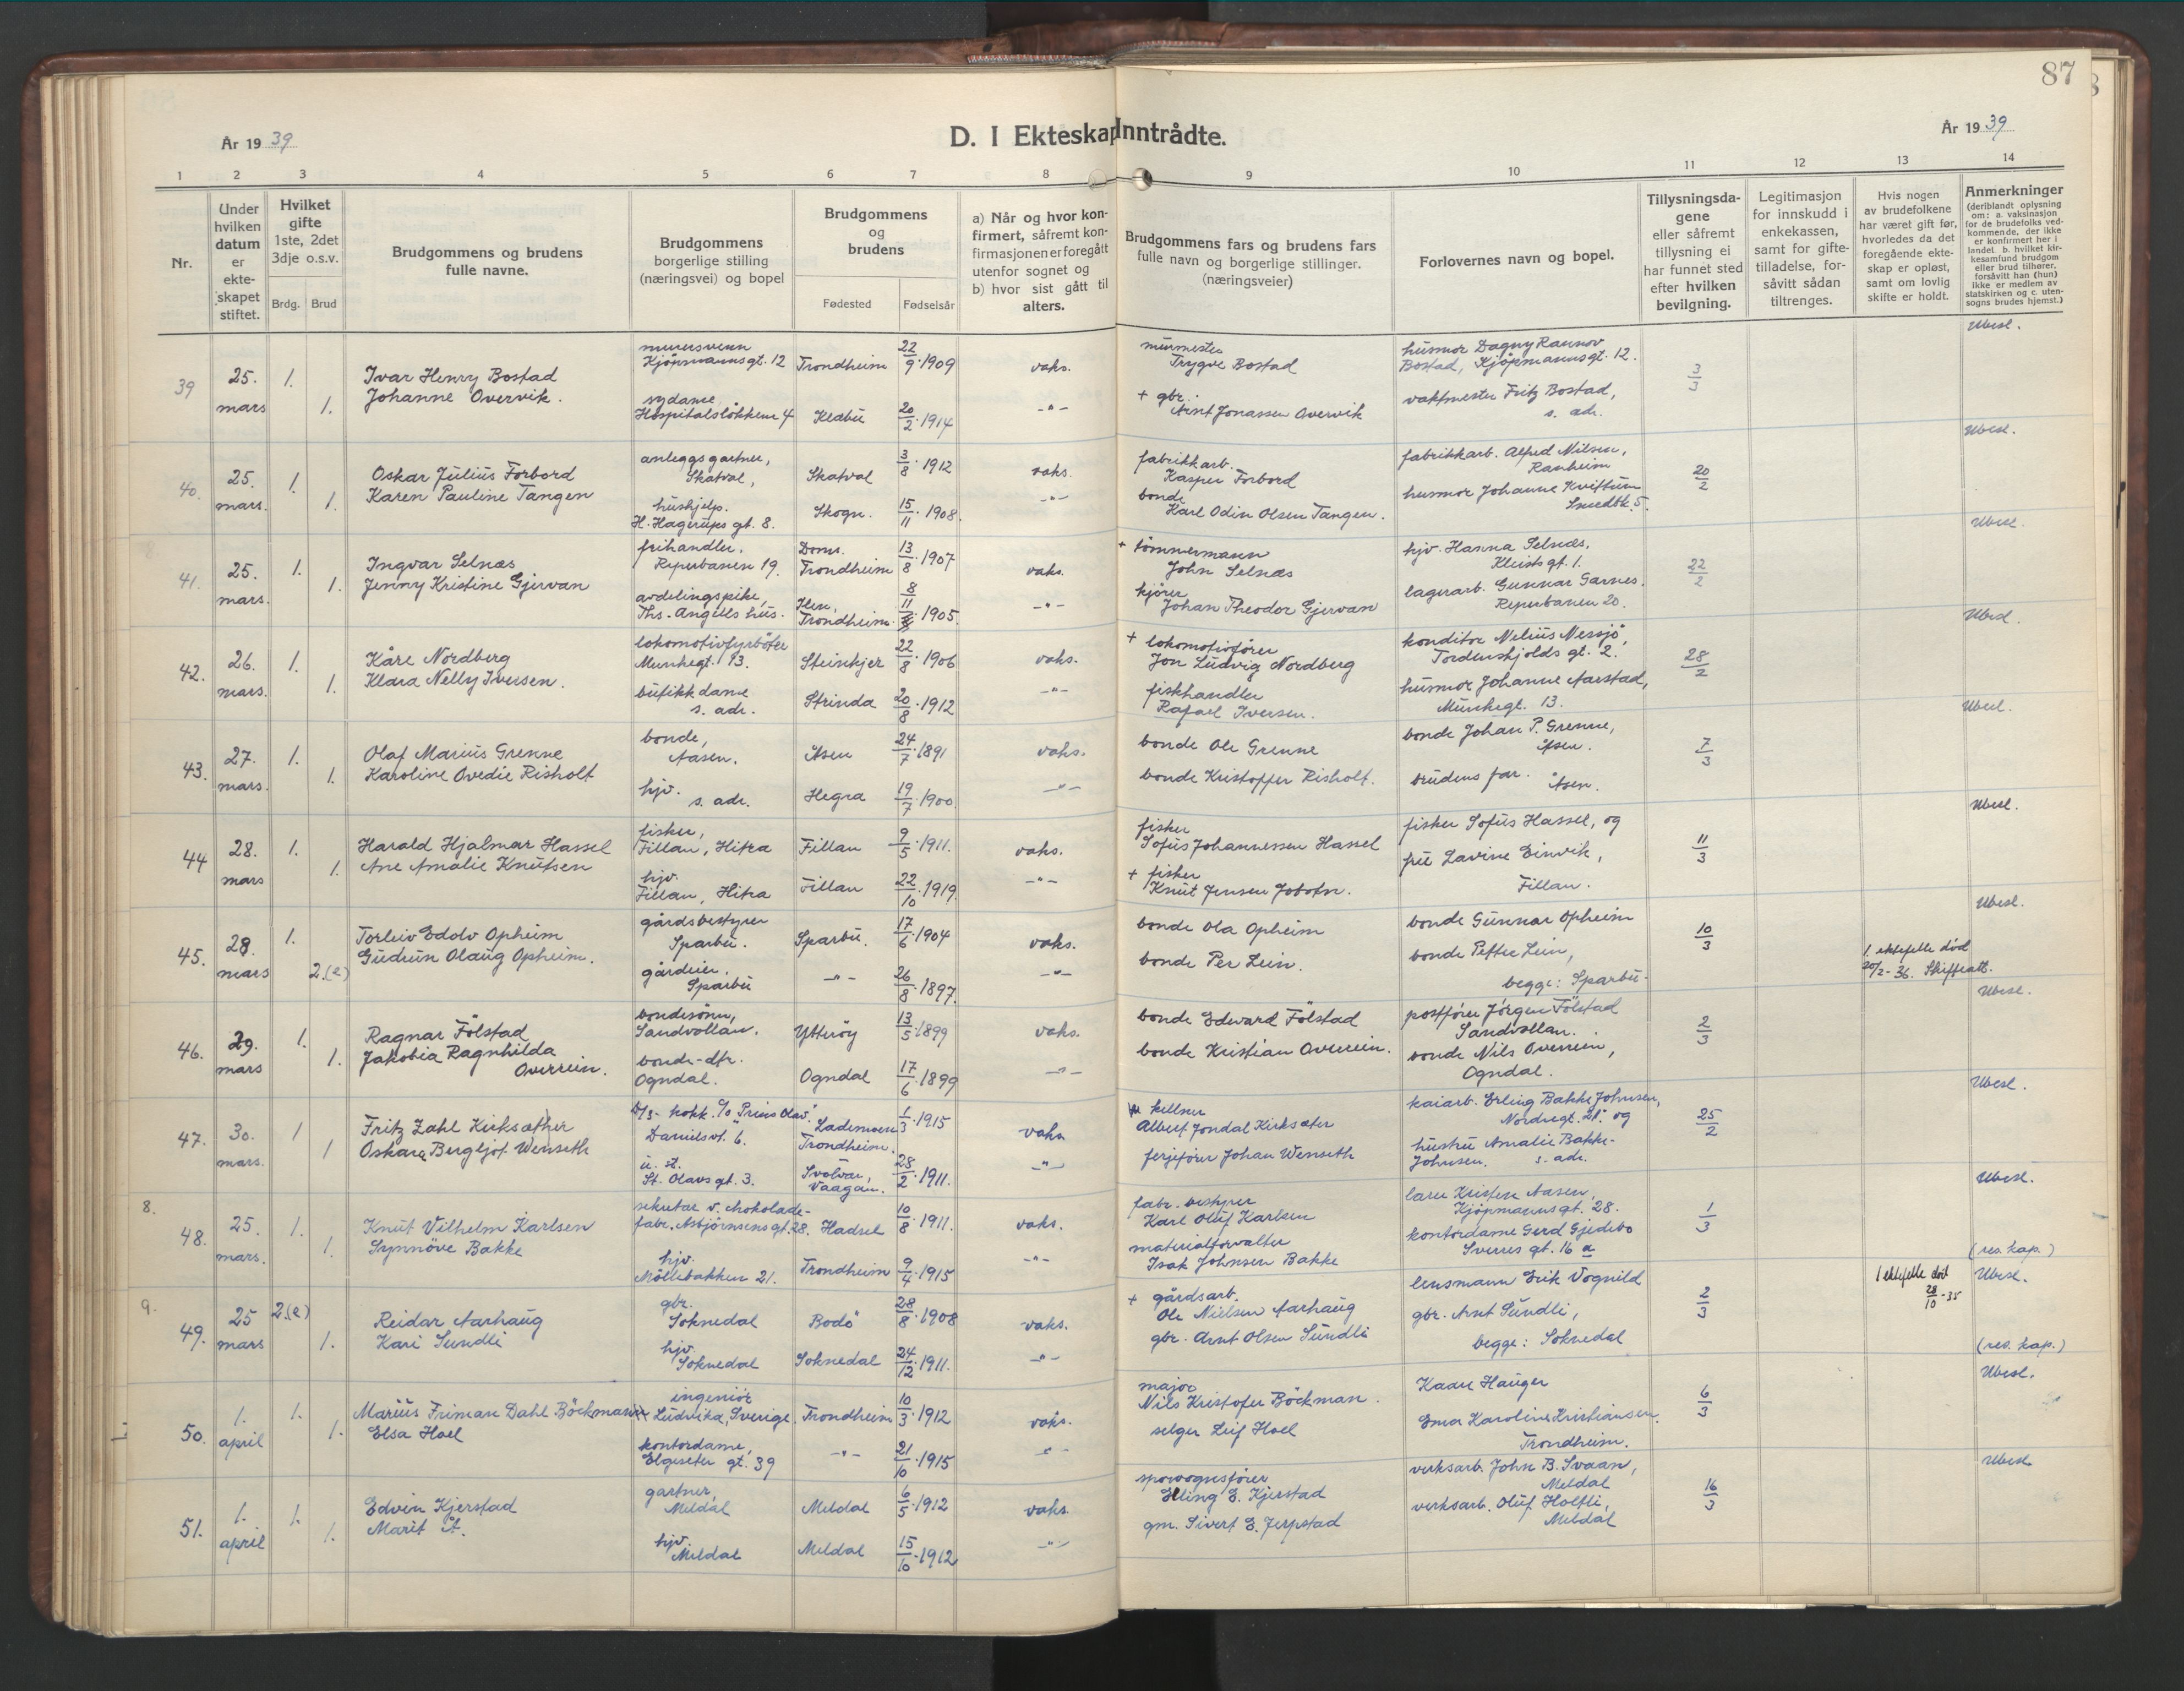 87
År 1939
D. I Ekteskap Inntrådte.
År 1939
1 2 3 4 5 6 7 8 9 10 11 12 13 14
Nr.
Under hvilken datum er ekteskapet stiftet.
Hvilket gifte 1ste, 2det 3dje o.s.v.
Brdg. Brud
Brudgommens og brudens fulle navne.
Brudgommens borgerlige stilling (næringsvei) og bopel
Brudgommens og brudens
Fødested Fødselsår
a) Når og hvor konfirmert, såfremt konfirmasjonen er foregått utenfor sognet og b) hvor sist gått til alters.
Brudgommens fars og brudens fars fulle navn og borgerlige stillinger. (næringsveier)
Forlovernes navn og bopel.
Tillysningsdagene eller såfremt tillysning ei har funnet sted efter hvilken bevilgning.
Legitimasjon for innskudd i enkekassen, samt for giftetilladelse, forsåvitt sådan tiltrenges.
Hvis nogen av brudefolkene har været gift før, hvorledes da det foregående ekteskap er opløst, samt om lovlig skifte er holdt.
Anmerkninger (deriblandt oplysning om: a. vaksinasjon for de brudefolks vedkommende, der ikke er konfirmert her i landet b. hvilket kirkesamfund brudgom eller brud tilhører, forsåvitt han (hun) ikke er medlem av statskirken og c. utensogns brudes hjemst.)
39 25. mars 1. Ivar Henry Bostad murersvenn Kjöpmannsgt. 12 Trondheim 22/9 1909 vaks. murmester Trygve Bostad husmor Dagny Rannov Bostad, Kjöpmannsgt. 12. 3/3 Ubesl.
1. Johanne Overvik. sydame, Hospitalslökkene 4 Klæbu 20/2 1914 -"- + gbr. Arnt Jonassen Overvik vaktmester Fritz Bostad, s. adr.
40. 25. mars. 1. Oskar Julius Forbord anleggsgartner, Skatval, Skatval 3/8 1912 vaks. fabrikkarb. Kasper Forbord fabrikkarb. Alfred Nilsen, Ranheim 20/2 Ubesl.
1. Karen Pauline Tangen hushjelp. H. Hagerups gt. 8. Skogn. 15/11 1908. -"- bonde Karl Odin Olsen Tangen. husmor Johanne Kvistum Smedbk. 5.
41. 25. mars. 1. Ingvar Selnæs frihandler, Reperbanen 19. Doms. Trondheim 13/8 1907 vaks. + tömmermann John Selnæs hjv. Hanna Selnæs, Kleists gt. 1. 22/2 Ubesl.
1. Jenny Kristine Gjervan avdelingspike, Ths. Angells hus. Ilen, Trondheim. 8/11 1905. -"- kjörer Johan Theodor Gjervan lagerarb. Gunnar Garnes. Reperbanen 20.
42. 26. mars. 1. Kåre Nordberg lokomotivfyrböter Munkegt. 13. Steinkjer 22/8 1906 vaks. + lokomotivförer Jon Ludvig Nordberg konditor Nelius Nessjö, Tordenskjolds gt. 2. 28/2 Ubesl.
1. Klara Nelly Iversen. butikkdame s. adr. Strinda 20/8 1912 -"- fiskhandler Rafael Iversen. husmor Johanne Aarstad, Munkegt. 13.
43. 27. mars. 1. Olaf Marius Grenne bonde, Aasen. Åsen 24/7 1891 vaks. bonde Ole Grenne bonde Johan P. Grenne, Åsen. 7/3 Ubesl.
1. Karoline Ovedie Risholt hjv. s. adr. Hegra 19/7 1900 -"- bonde Kristoffer Risholt. brudens far. Åsen.
44 28. mars 1. Harald Hjalmar Hassel fisker, Fillan, Hitra Fillan 9/5 1911. vaks. fisker Sofus Johannessen Hassel fisker Sofus Hassel, og 11/3 Ubesl.
1. Ane Amalie Knutsen hjv. Fillan, Hitra Fillan 22/10 1919. -"- + fisker Knut Jensen fru Lavine Einvik, Fillan.
45. 28. mars 1. Torleiv Eddov Opheim gårdsbestyrer Sparbu. Sparbu. 17/6 1904 vaks. bonde Ola Opheim bonde Gunnar Opheim 10/3 Ubesl.
2.(e) Gudrun Olaug Opheim. gårdeier. Sparbu -"- 26/8 1897. -"- bonde Per Lein. bonde Petter Lein, begge: Sparbu. 1. ektefelle död 20/2-36. Skifteatt.
46. 29. mars 1. Ragnar Fölstad bondesönn, Sandvollan. Ytteröy 13/5 1899 vaks. bonde Edward Fölstad postförer Jörgen Fölstad Sandvollan. 2/3 Ubesl.
1. Jakobia Ragnhilda Overrein. bonde-dtr. Ogndal. Ogndal 17/6 1899 -"- bonde Kristian Overrein. bonde Nils Overrein, Ogndal.
47. 30. mars. 1 Fritz Zahl Kirksæther D/S- kokk. c/o "Prins Olav." Danielsvt. 6. Lademoen Trondheim. 1/3 1915 vaks kellner Albert Jondal Kirksæter kaiarb. Erling Bakke Johnsen, Nordregt. 21. og 25/2 Ubesl.
1 Oskara Bergljot Wenseth u. st. St. Olavs gt. 3. Svolvær, Vaagan. 28/2 1911. -"- ferjefører Johan Wenseth hustru Amalie Bakke-Johnsen. s. adr.
8. 48. 25. mars. 1. Knut Vilhelm Karlsen sekretær v. chokolade-fabr. Asbjörnsens gt. 28. Hadsel 10/8 1911. vaks. fabr. bestyrer Karl Oluf Karlsen lærer Kristen Aasen, Kjöpmannsgt. 28. 1/3 Ubesl.
1. Synnöve Bakke hjv. Möllebakken 21. Trondheim 9/4 1915 -"- materialforvalter Isak Johnsen Bakke kontordame Gerd Gjedebo Sverres gt. 16 a (res. kap.)
9. 49. 25 mars 2.(e) Reidar Aarhaug gbr. Soknedal Bodö 28/8 1908 vaks. + gårdsarb. Ole Nielsen Aarhaug lensmann Erik Vognild 2/3 1 ektefelle död 28/10-35 Ubesl.
1. Kari Sundli hjv. Soknedal Soknedal 24/12 1911. -"- gbr. Arnt Olsen Sundli gbr. Arnt Sundli, begge: Soknedal (res. kap.)
50. 1. april 1. Marius Friman Dahl Böckmann ingeniör Ludvika, Sverige. Trondheim 10/3 1912 vaks. major Nils Kristofer Böckman. Kaare Hauger 6/3 Ubesl.
1. Elsa Hoel kontordame, Elgeseter gt. 39 -"- 21/10 1915 -"- selger Leif Hoel Ema Karoline Kristiansen. Trondheim.
51. 1. april 1. Edvin Kjerstad gartner, Meldal Meldal 6/5 1912 vaks. sporvognsförer Elling E. Kjerstad verksarb. John B. Svaan, Meldal 16/3 Ubesl.
1. Marit Å. hjv. Meldal Meldal 15/10 1912 -"- gm. Sivert E. Jerpstad verksarb. Oluf Holtli, Meldal